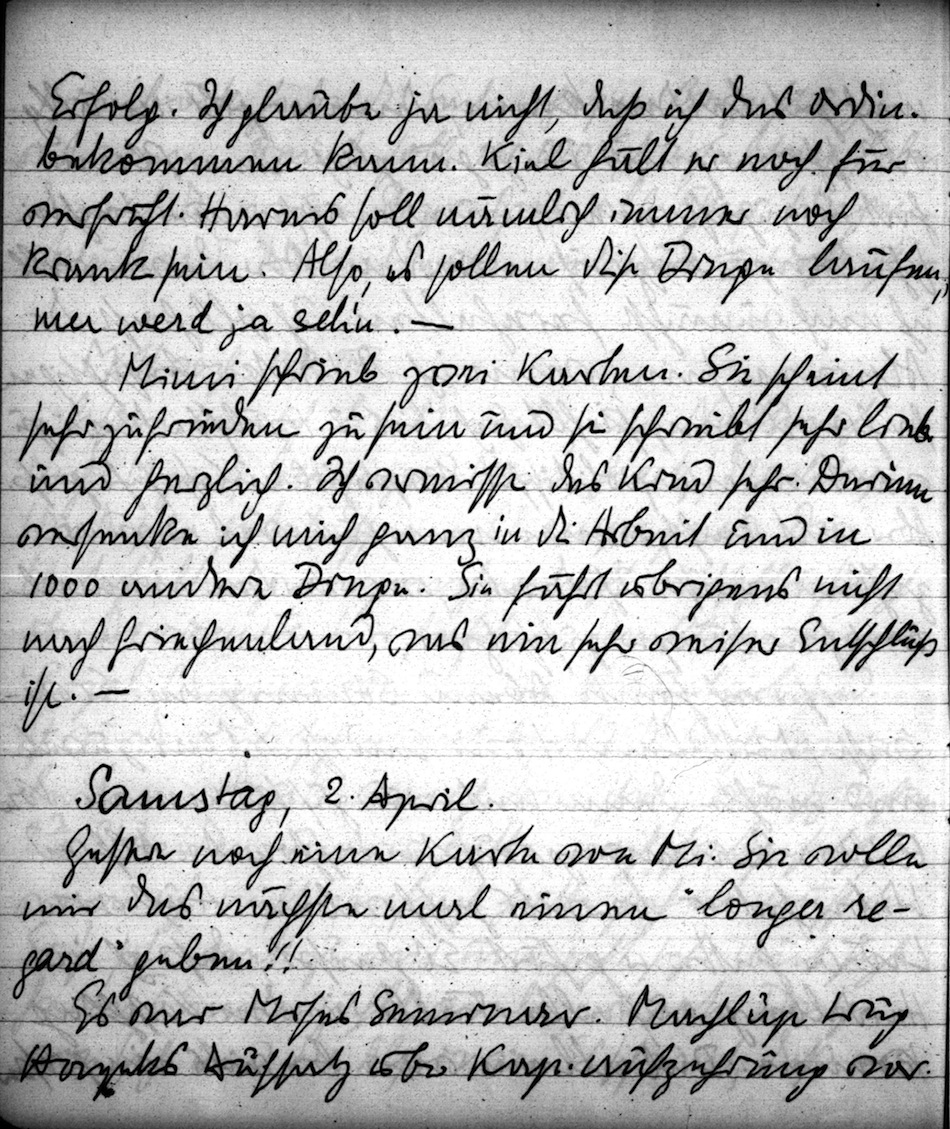 Erfolg. Ich glaube ja nicht, daß ich das Ordin.
bekommen kann. Kiel hält er noch für
versucht. Harms soll nämlich immer noch
krank sein. Also, es sollen diese Dinge laufen,
mer werd ja sehn. —
Mimi schrieb zwei Karten. Sie scheint
sehr zufrieden zu sein und sie schreibt sehr lieb
und herzlich. Ich vermisse das Kind sehr. Darum
versenke ich mich ganz in die Arbeit und in
1000 andere Dinge. Sie fährt übrigens nicht
nach Griechenland, was ein sehr weiser Entschluß
ist. —
Samstag, 2. April.
Gestern noch eine Karte von Mi. Sie wolle
mir das nächste mal einen "longer re-
gard" geben!!
Es war Mises Seminar. Machlup trug
Hayeks Aufsatz über Kap. aufzehrung vor.